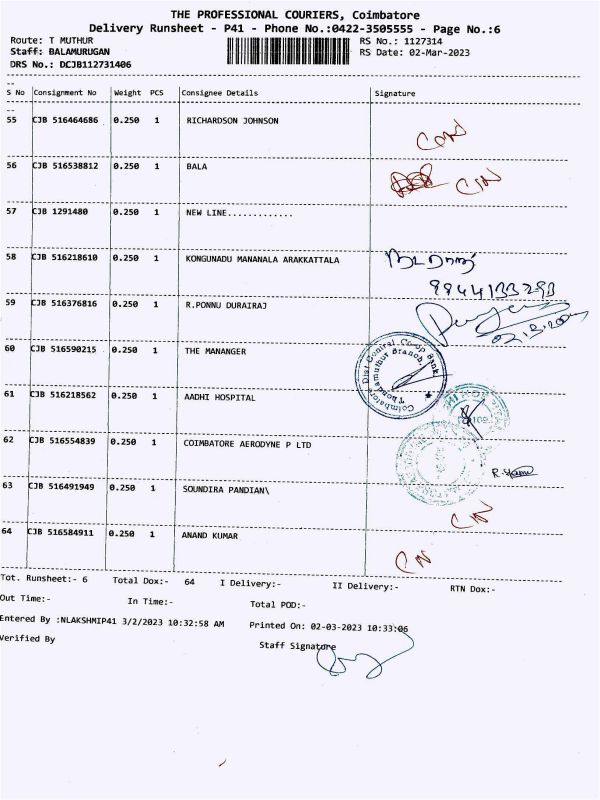 THE PROFESSIONAL COURIERS, Coimbatore
Delivery Runsheet - P41 - Phone No.:0422-3505555 - Page No.:6
Route: T MUTHUR RS No.: 1127314
Staff: BALAMURUGAN RS Date: 02-Mar-2023
DRS No.: DCJB112731406
S No Consignment No Weight PCS Consignee Details Signature
55 CJB 516464686 0.250 1 RICHARDSON JOHNSON
56 CJB 516538812 0.250 1 BALA
57 CJB 1291480 0.250 1 NEW LINE.............
58 CJB 516218610 0.250 1 KONGUNADU MANANALA ARAKKATTALA
9944133293
59 CJB 516376816 0.250 1 R.PONNU DURAIRAJ
60 CJB 516590215 0.250 1 THE MANANGER
Coimbatore Dist Central Co-op Bank
Thondamuthur Branch
61 CJB 516218562 0.250 1 AADHI HOSPITAL
62 CJB 516554839 0.250 1 COIMBATORE AERODYNE P LTD
63 CJB 516491949 0.250 1 SOUNDIRA PANDIAN\
64 CJB 516584911 0.250 1 ANAND KUMAR
Tot. Runsheet:- 6 Total Dox:- 64 I Delivery:- II Delivery:- RTN Dox:-
Out Time:- In Time:- Total POD:-
Entered By :NLAKSHMIP41 3/2/2023 10:32:58 AM Printed On: 02-03-2023 10:33:06
Verified By Staff Signature